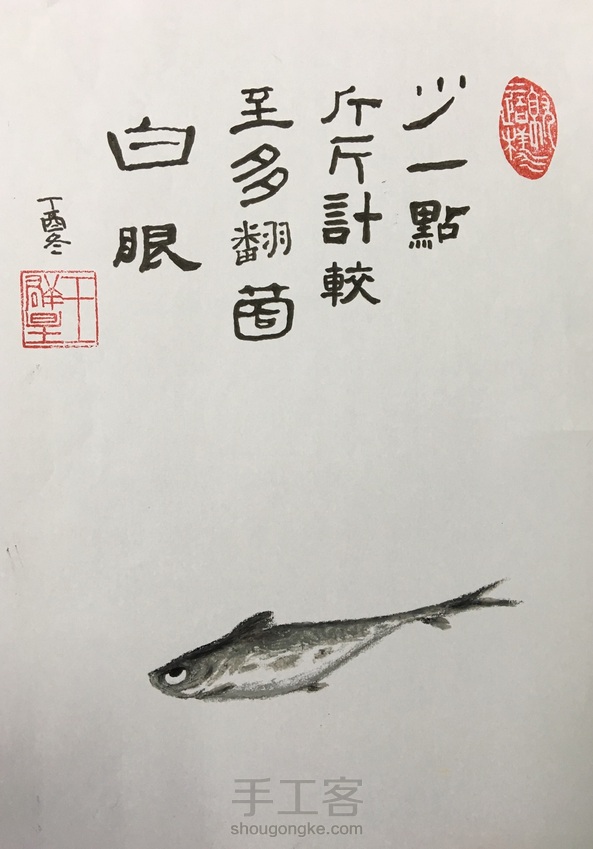 少一點
斤斤計較
至多翻箇
白眼
丁酉冬
手工客
shougongke.com